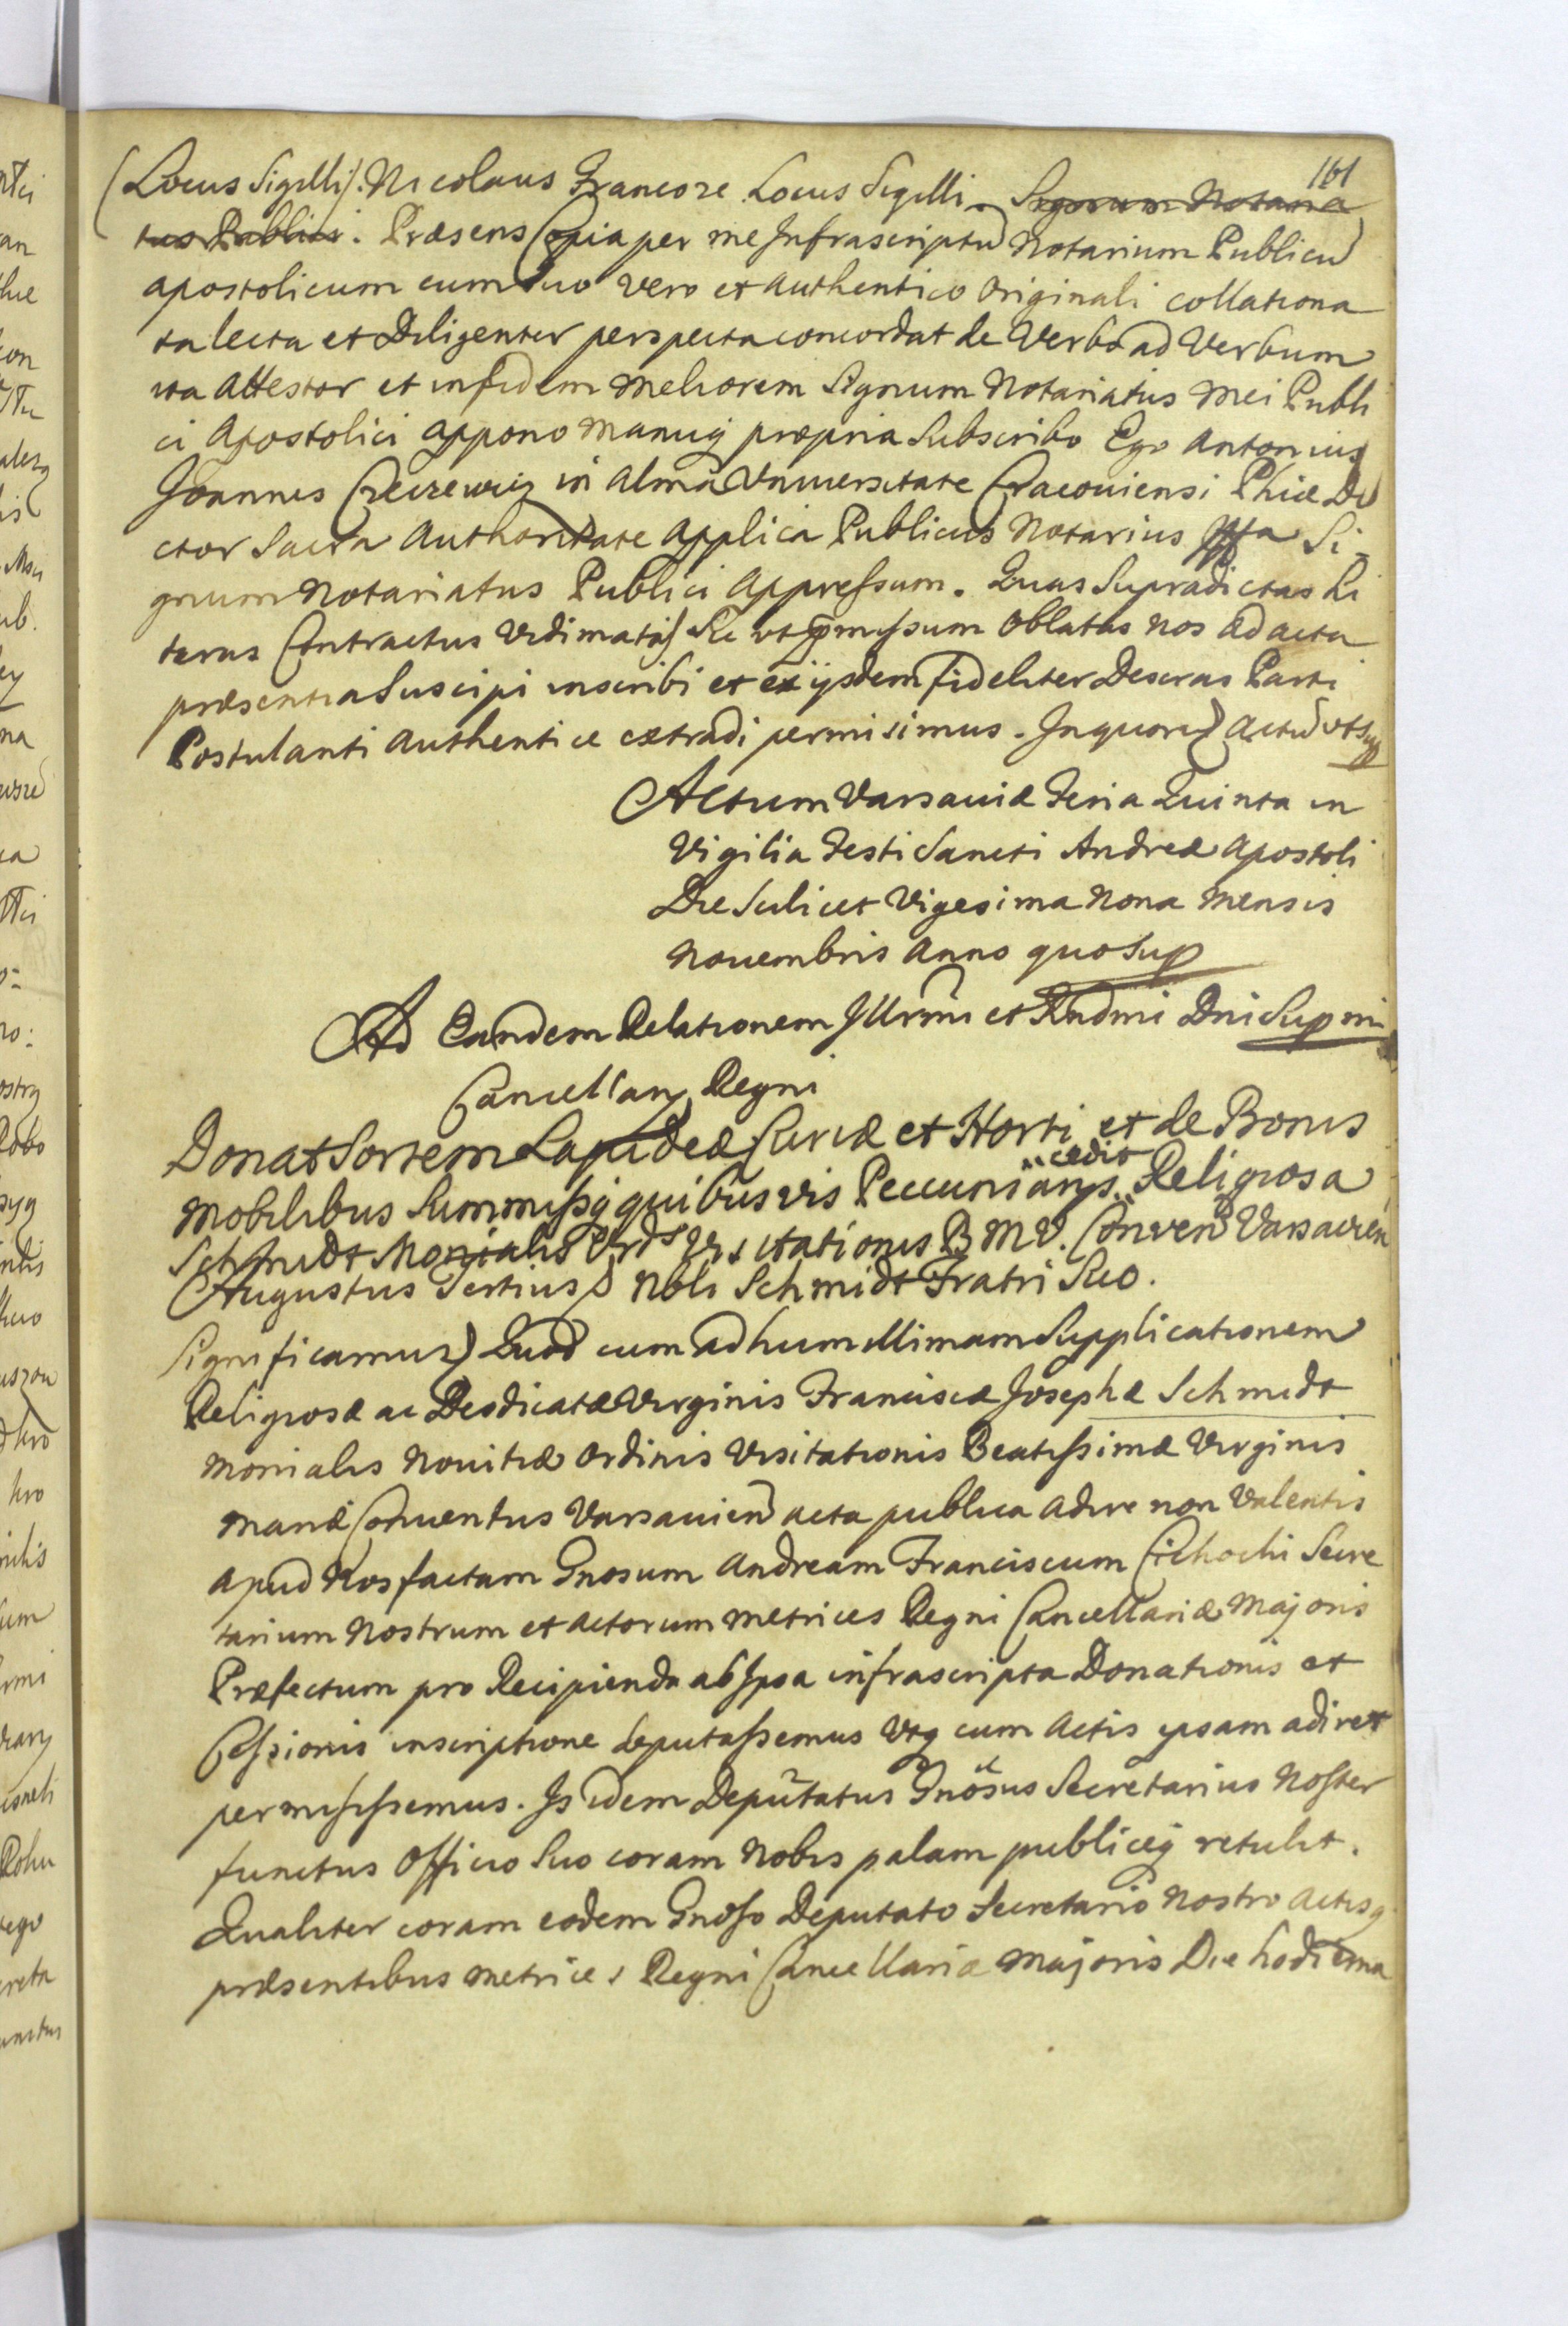 161
(Locus Sigilli). Nicolaus Francoze Locus Sigilli. Signum Notaria
tus Publici. Præsens Copia per me Infrascriptũ Notarium Publicũ
apostolicum cum suo vero et authentico Originali collationa
ta lecta et Diligenter perspecta concordat de Verbo ad Verbum
ita Attestor et in fidem meliorem Signum Notariatus mei Publi
ci Apostolici appono manuq propria Subscribo Ego Antonius
Joannes in Alma Universitate Cracoviensi Phiæ Do
ctor Sacra Authoritate Applica Publicus Notarius Si
gnum Notariatus Publici Appressum. Quas Supradictas Li
teras Contractus Vidimatas Sic ut præmissum Oblatas Nos ad acta
præsentia Suscipi inscribi et ex ijsdem fideliter Descras Parti
Postulanti Authentice extradi permisimus. In quorũ Actũ ut sup
Actum Varsaviæ Feria Quinta in
Vigilia Festi Sancti Andreæ Apostoli
Die Scilicet Vigesima Nona Mensis
Novembris Anno quo Sup
Ad Eandem Relationem Illrmi et Rndmi Dni Supmi
Cancellarij Regni
Donat Sortem Lapideæ Curiæ et Horti et de Bonis
Mobilibus Summisq quibusvis Pecuniarijs cedit Religiosa
Schmidt Monialis Ord Visitationis B M V. Conven Varsavien
Augustus Tertius Nbli Schmidt Fratri Suo.
Significamus Quod cum ad humillimam Supplicationem
Religiosæ ac Deodicatæ Virginis Franciscæ Josephæ Schmidt
Monialis Novitiæ Ordinis Visitationis Beatissimæ Virginis
Mariæ Conventus Varsavien acta publica adire non Valentis
apud Nos factam Gnosum Andream Franciscum Cichocki Secre
tarium Nostrum et Actorum Metrices Regni Cancellariæ Majoris
Præfectum pro Recipienda ab Ipsa infrascripta Donationis et
Cessionis inscriptione deputassemus Utq cum Actis ipsam adiret
permisissemus. Is idem Deputatus Gnosus Secretarius Noster
functus Officio Suo coram Nobis palam publiceq retulit.
Qualiter coram eodem Gnoso Deputato Secretario Nostro Actisq
præsentibus Metrices Regni Cancellariæ Majoris Die hodierna